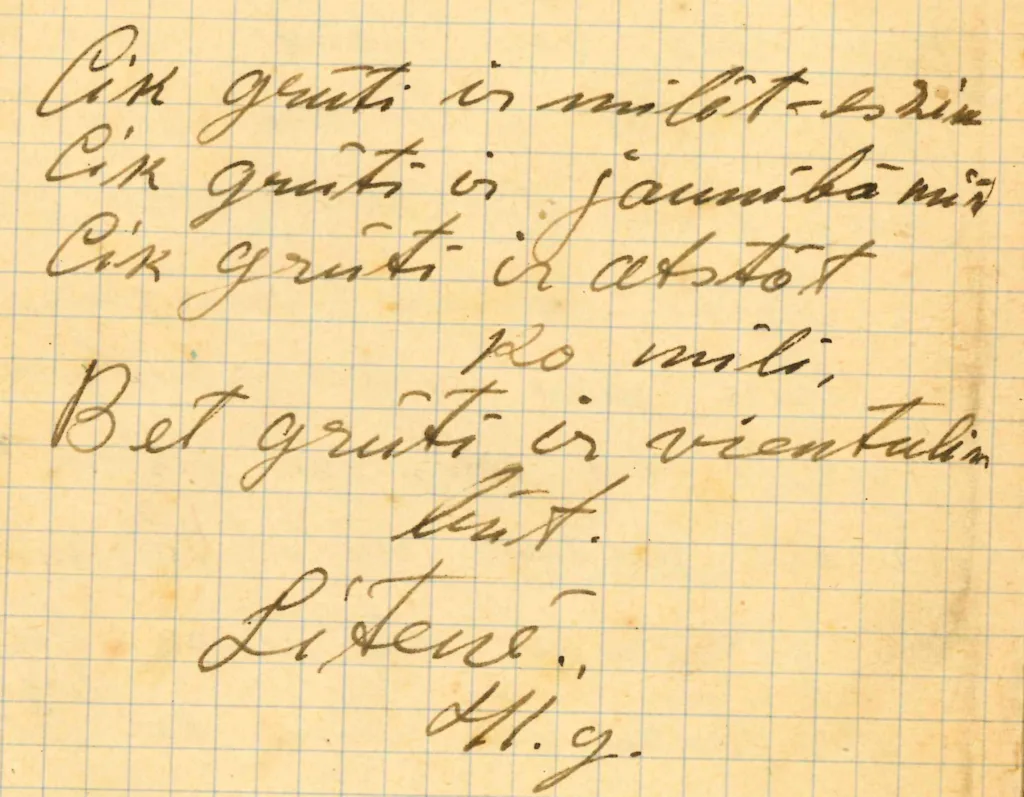 Cik grūti ir milēt - es zin
Cik grūti ir jaunībā mir
Cik grūti ir atstāt
ko mīli,
Bet grūti ir vientulim
būt.
Litenē.,
41. g.